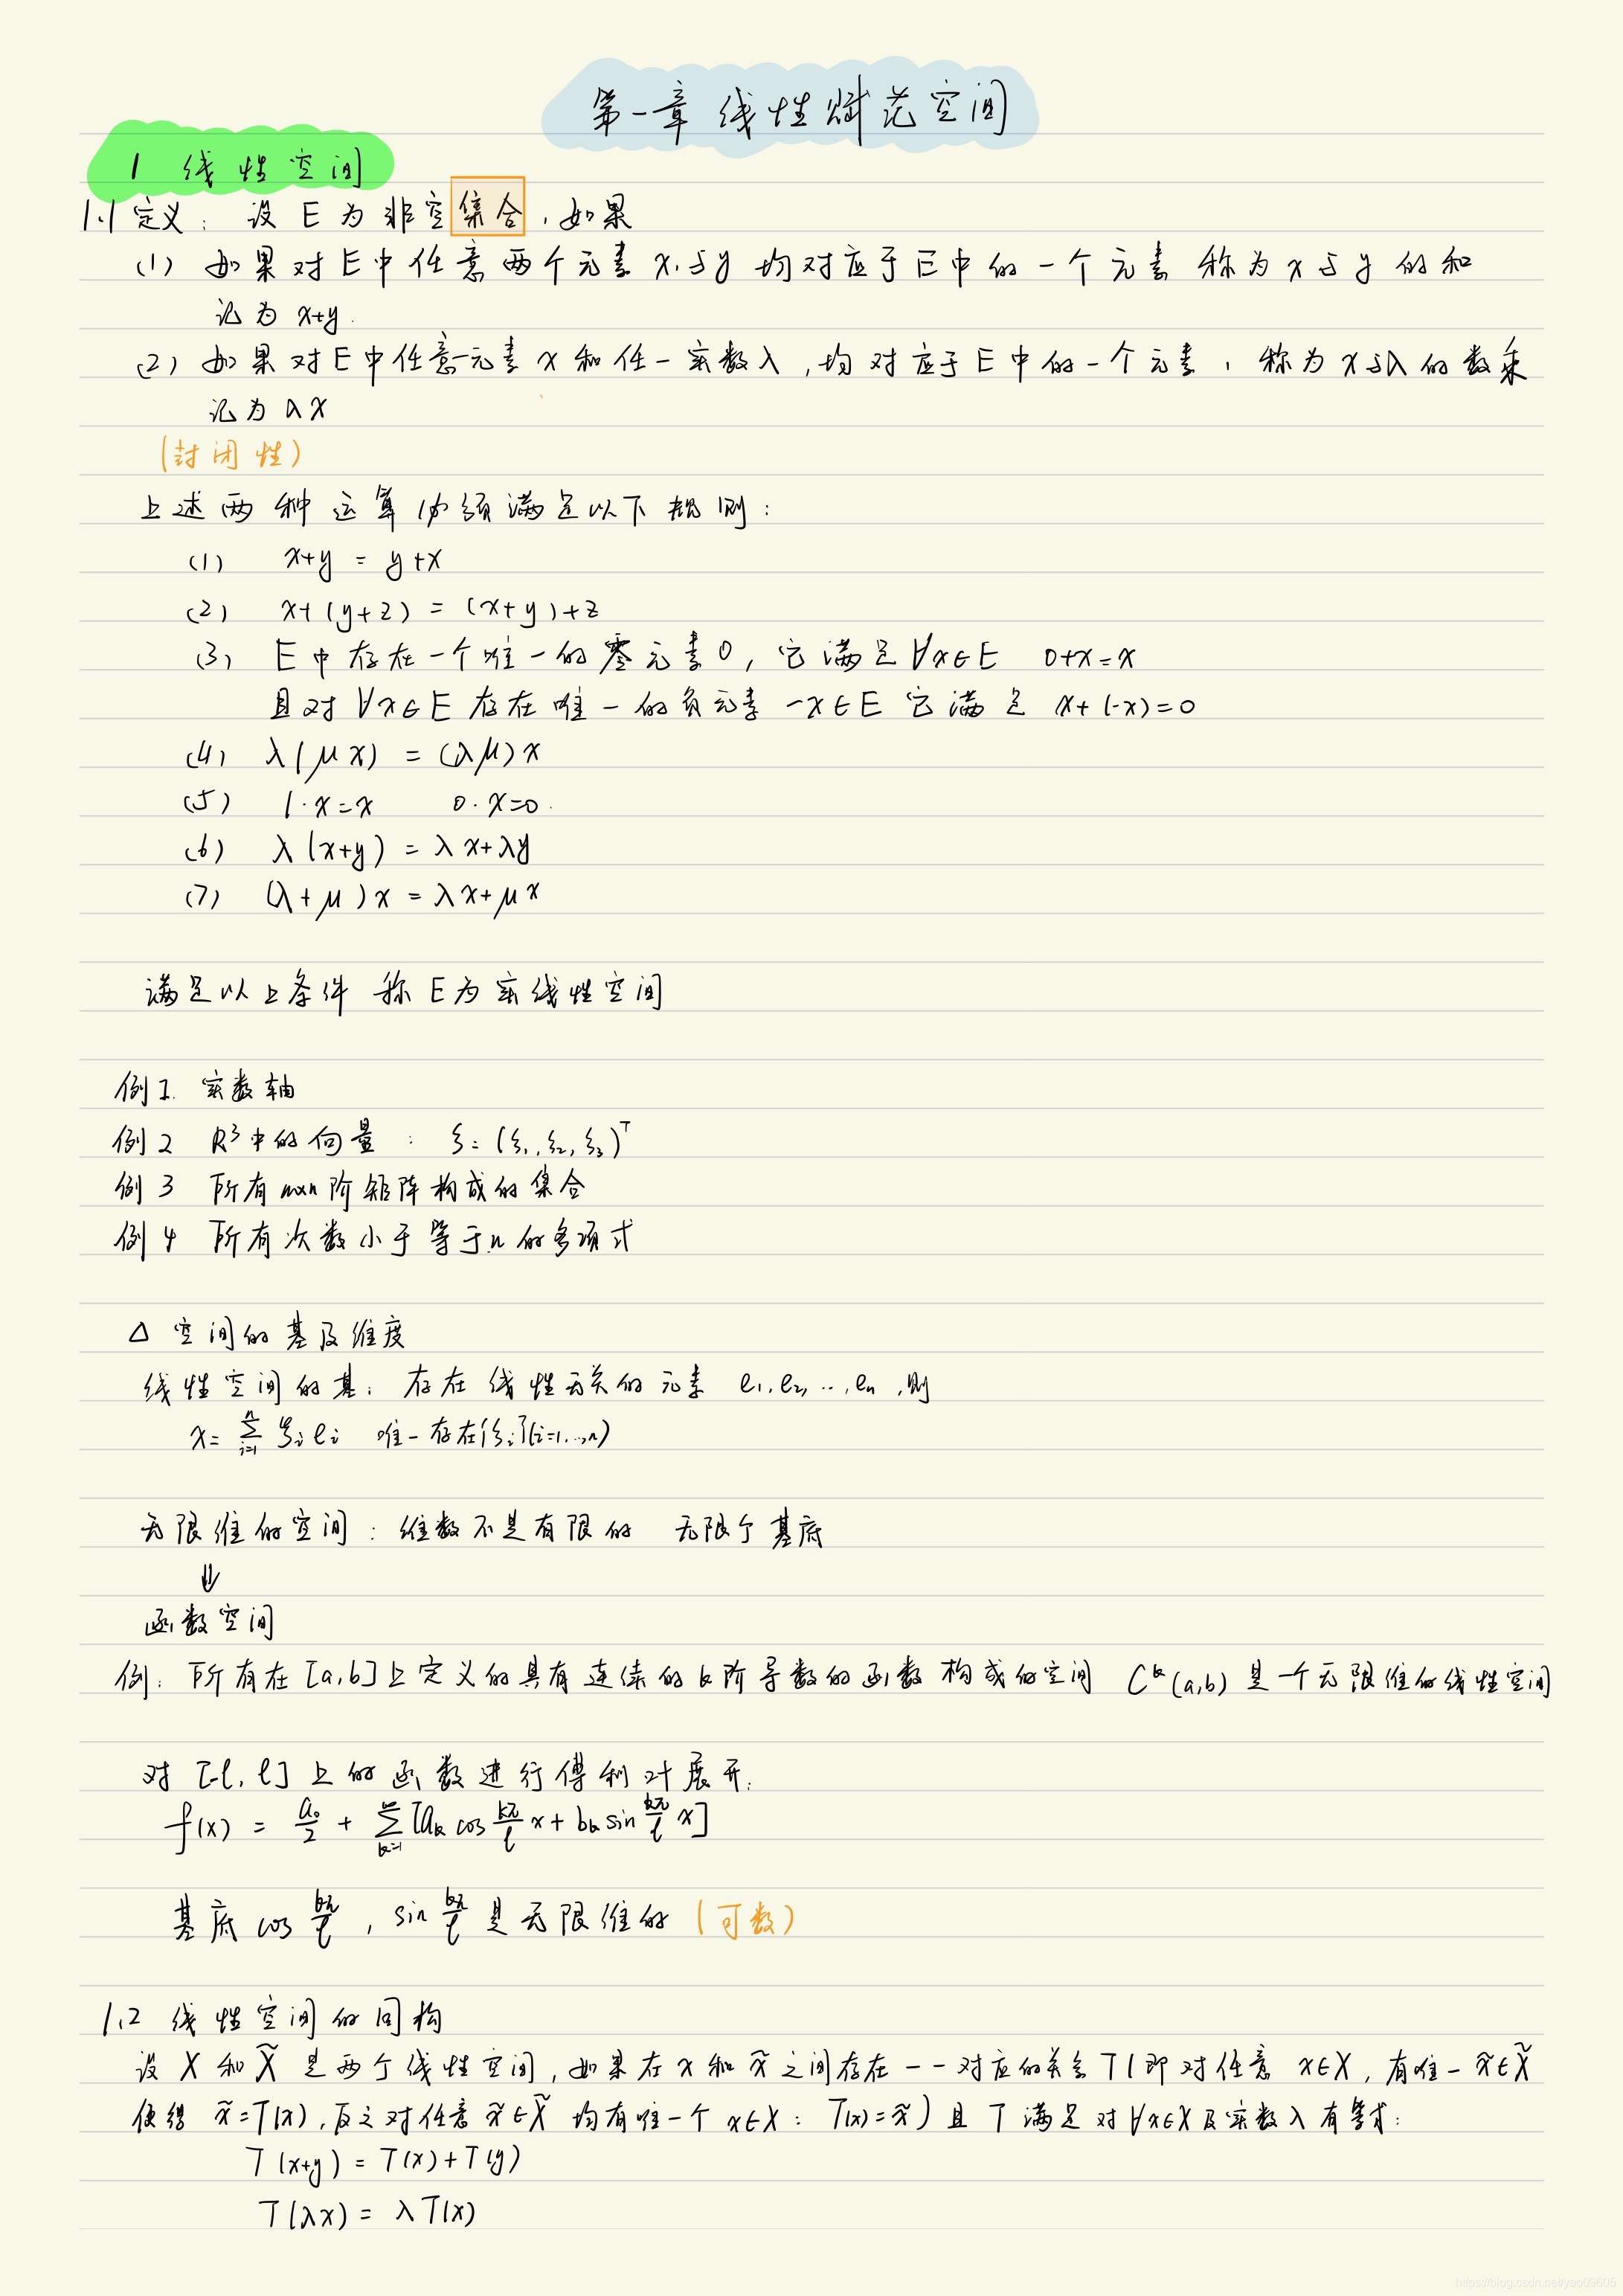 第一章 线性赋范空间
1 线性空间
1.1 定义: 设 E 为非空集合,如果
(1) 如果对E中任意两个元素 x,与y 均对应于E中的一个元素 称为x与y的和
记为 x+y.
(2) 如果对E中任意元素x和任一实数λ,均对应于E中的一个元素,称为x与λ的数乘
记为 λx
(封闭性)
上述两种运算必须满足以下规则:
(1) x+y = y+x
(2) x+(y+z) = (x+y)+z
(3) E中存在一个唯一的零元素0,它满足∀x∈E 0+x=x
且对∀x∈E存在唯一的负元素 -x∈E 它满足 x+(-x)=0
(4) λ(μx) = (λμ)x
(5) 1·x=x 0·x=0.
(6) λ(x+y) = λx+λy
(7) (λ+μ)x = λx+μx
满足以上条件 称E为实线性空间
例1. 实数轴
例2 R³中的向量: ξ=(ξ₁,ξ₂,ξ₃)ᵀ
例3 所有m×n阶矩阵构成的集合
例4 所有次数小于等于n的多项式
△ 空间的基及维度
线性空间的基: 存在线性无关的元素 e₁,e₂,…,eₙ,则
x=∑ⁿᵢ₌₁ ξᵢeᵢ 唯一存在{ξᵢ}(i=1,…,n)
无限维的空间: 维数不是有限的 无限个基底
⇓
函数空间
例: 所有在[a,b]上定义的具有连续的k阶导数的函数构成的空间 Cᵏ(a,b) 是一个无限维的线性空间
对[-l,l]上的函数进行傅利叶展开:
f(x) = a₀/2 + ∑^∞_{k=1}[aₖ cos kπ/l x + bₖ sin kπ/l x]
基底 cos kπ/l , sin kπ/l 是无限维的 (可数)
1.2 线性空间的同构
设 X 和 X̃ 是两个线性空间,如果在 x 和 x̃ 之间存在一一对应的关系 T(即对任意 x∈X,有唯一 x̃∈X̃
使得 x̃=T(x),反之对任意 x̃∈X̃ 均有唯一个 x∈X: T(x)=x̃) 且 T 满足对∀x∈X及实数λ有等式:
T(x+y) = T(x)+T(y)
T(λx) = λT(x)
https://blog.csdn.net/yao09605